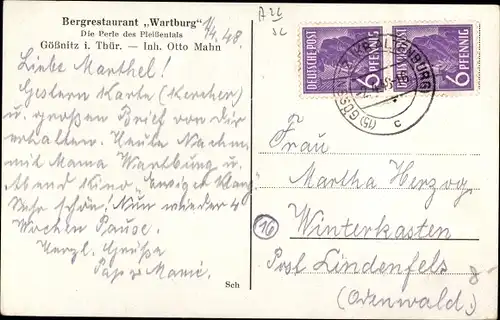 Bergrestaurant „Wartburg“
Die Perle des Pleißentals
Gößnitz i. Thür. — Inh. Otto Mahn
1/4.48.
Liebe Marthel!
Gestern Karte (Kercher)
u. großen Brief von dir
erhalten. Heute Nachm.
mit Mama Wartburg u.
Abend Kino „Ewiger Klang“
Sehr schön! Nun wieder 4
Wochen Pause.
Herzl. Grüße
Papa Marie.
Sch
DEUTSCHE POST
6 PFENNIG
DEUTSCHE POST
6 PFENNIG
c
Frau
Martha Herzog
Winterkasten
Post Lindenfels
(Odenwald)
16
8-